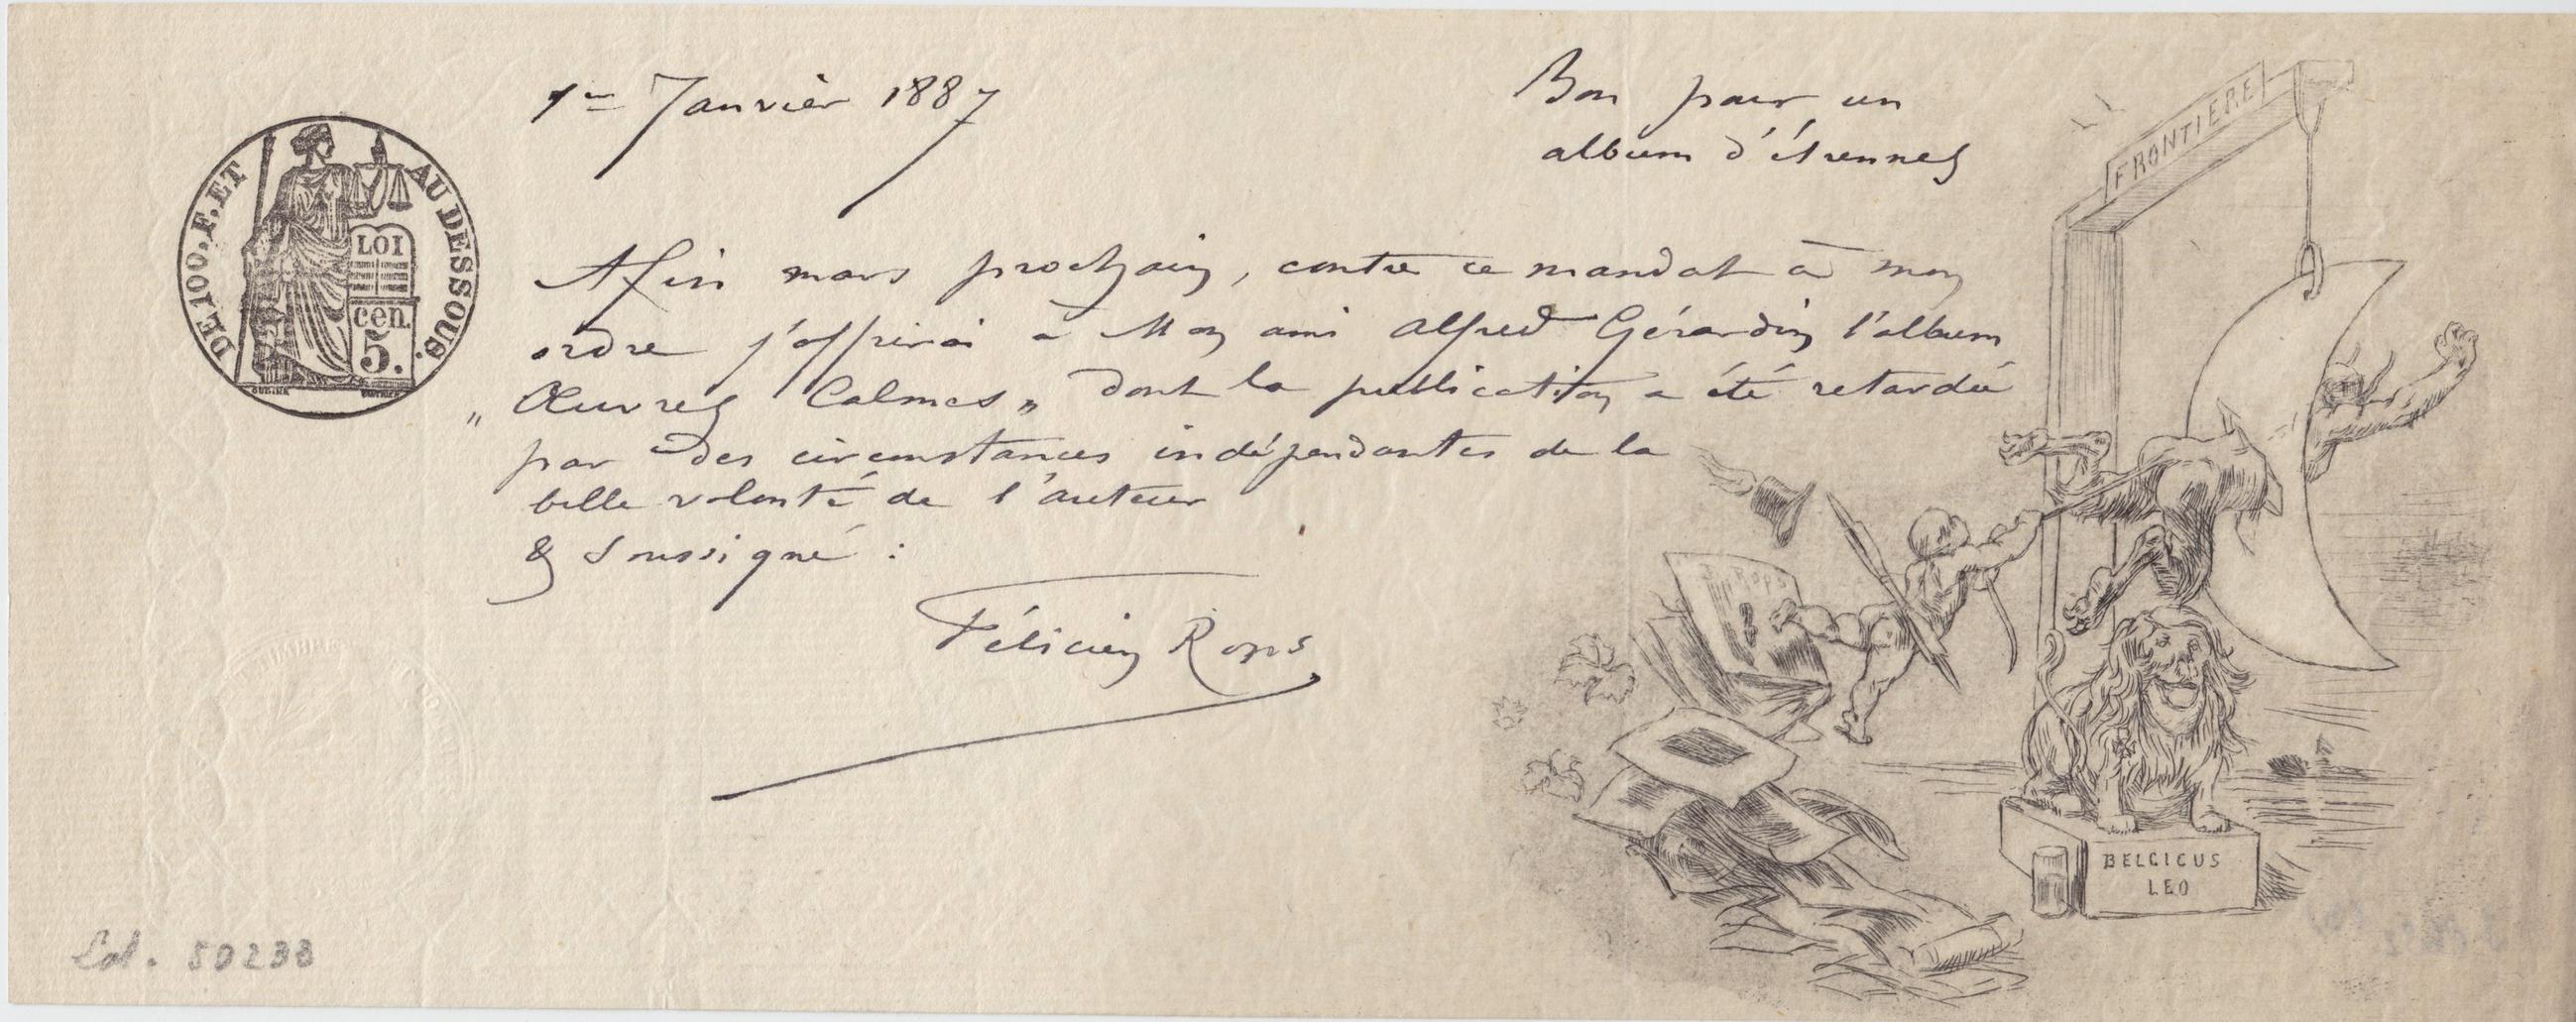 1er Janvier 1887
Bon pour un
album d'étrennes
DE 100. F. ET AU DESSOUS.
LOI
cen.
5.
A fin mars prochain, contre ce mandat à mon
ordre j'offrirai à Mon ami Alfred Gérardin l'album
„ Œuvres Calmes „ dont la publication a été retardée
par des circonstances indépendantes de la
belle volonté de l'auteur
& soussigné :
Félicien Rops
FRONTIERE
F. ROPS
BELGICUS
LEO
50233